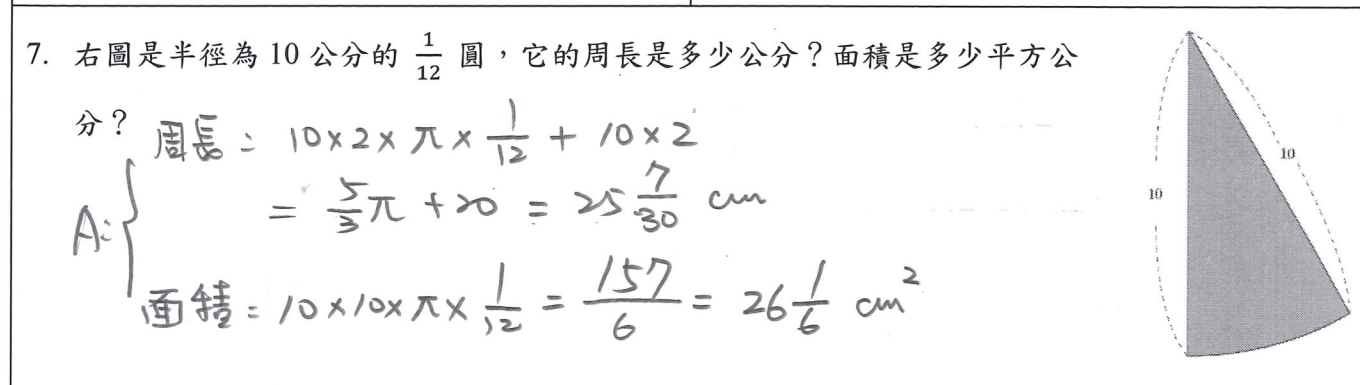 7. 右圖是半徑為 10 公分的 1/12 圓，它的周長是多少公分？面積是多少平方公
分？
周長： 10×2×π×1/12 + 10×2
= 5/3π +20 = 25 7/30 cm
A:
面積：10×10×π×1/12 = 157/6 = 26 1/6 cm²
10
10